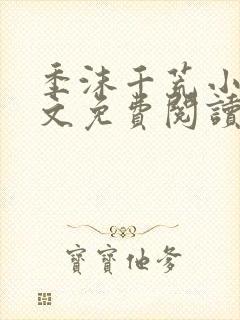 季沫千荒小
文免費閱讀
寶寶他爹